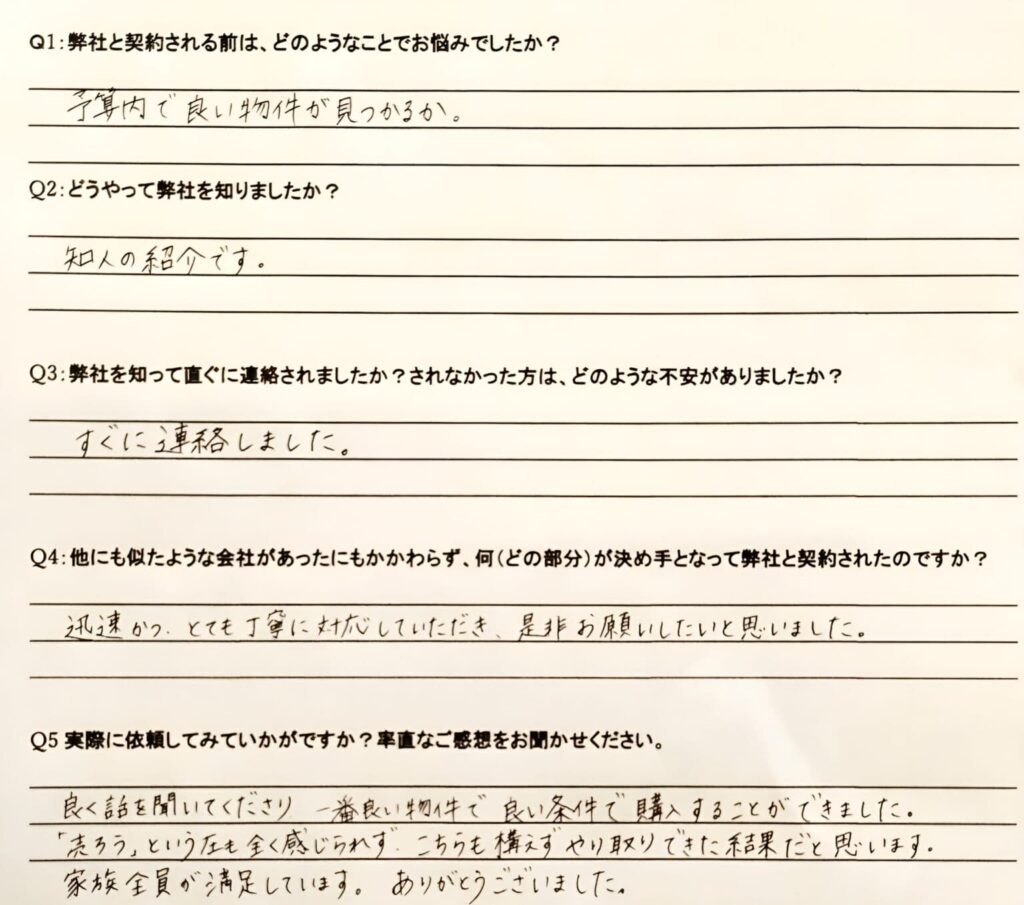 Q1：弊社と契約される前は、どのようなことでお悩みでしたか？
予算内で良い物件が見つかるか。
Q2：どうやって弊社を知りましたか？
知人の紹介です。
Q3：弊社を知って直ぐに連絡されましたか？されなかった方は、どのような不安がありましたか？
すぐに連絡しました。
Q4：他にも似たような会社があったにもかかわらず、何（どの部分）が決め手となって弊社と契約されたのですか？
迅速かつ、とても丁寧に対応していただき、是非お願いしたいと思いました。
Q5 実際に依頼してみていかがですか？率直なご感想をお聞かせください。
良く話を聞いてくださり 一番良い物件で 良い条件で購入することができました。
「売ろう」という圧も全く感じられず、こちらも構えずやり取りできた結果だと思います。
家族全員が満足しています。 ありがとうございました。